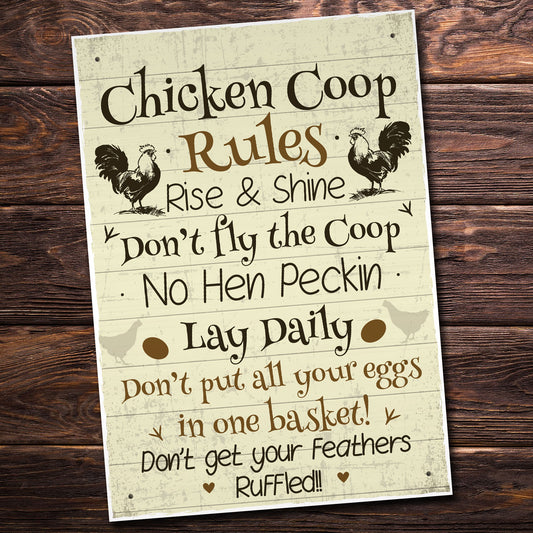 Chicken Coop
Rules
Rise & Shine
Don't fly the Coop
No Hen Peckin
Lay Daily
Don't put all your eggs
in one basket!
Don't get your Feathers
Ruffled!!